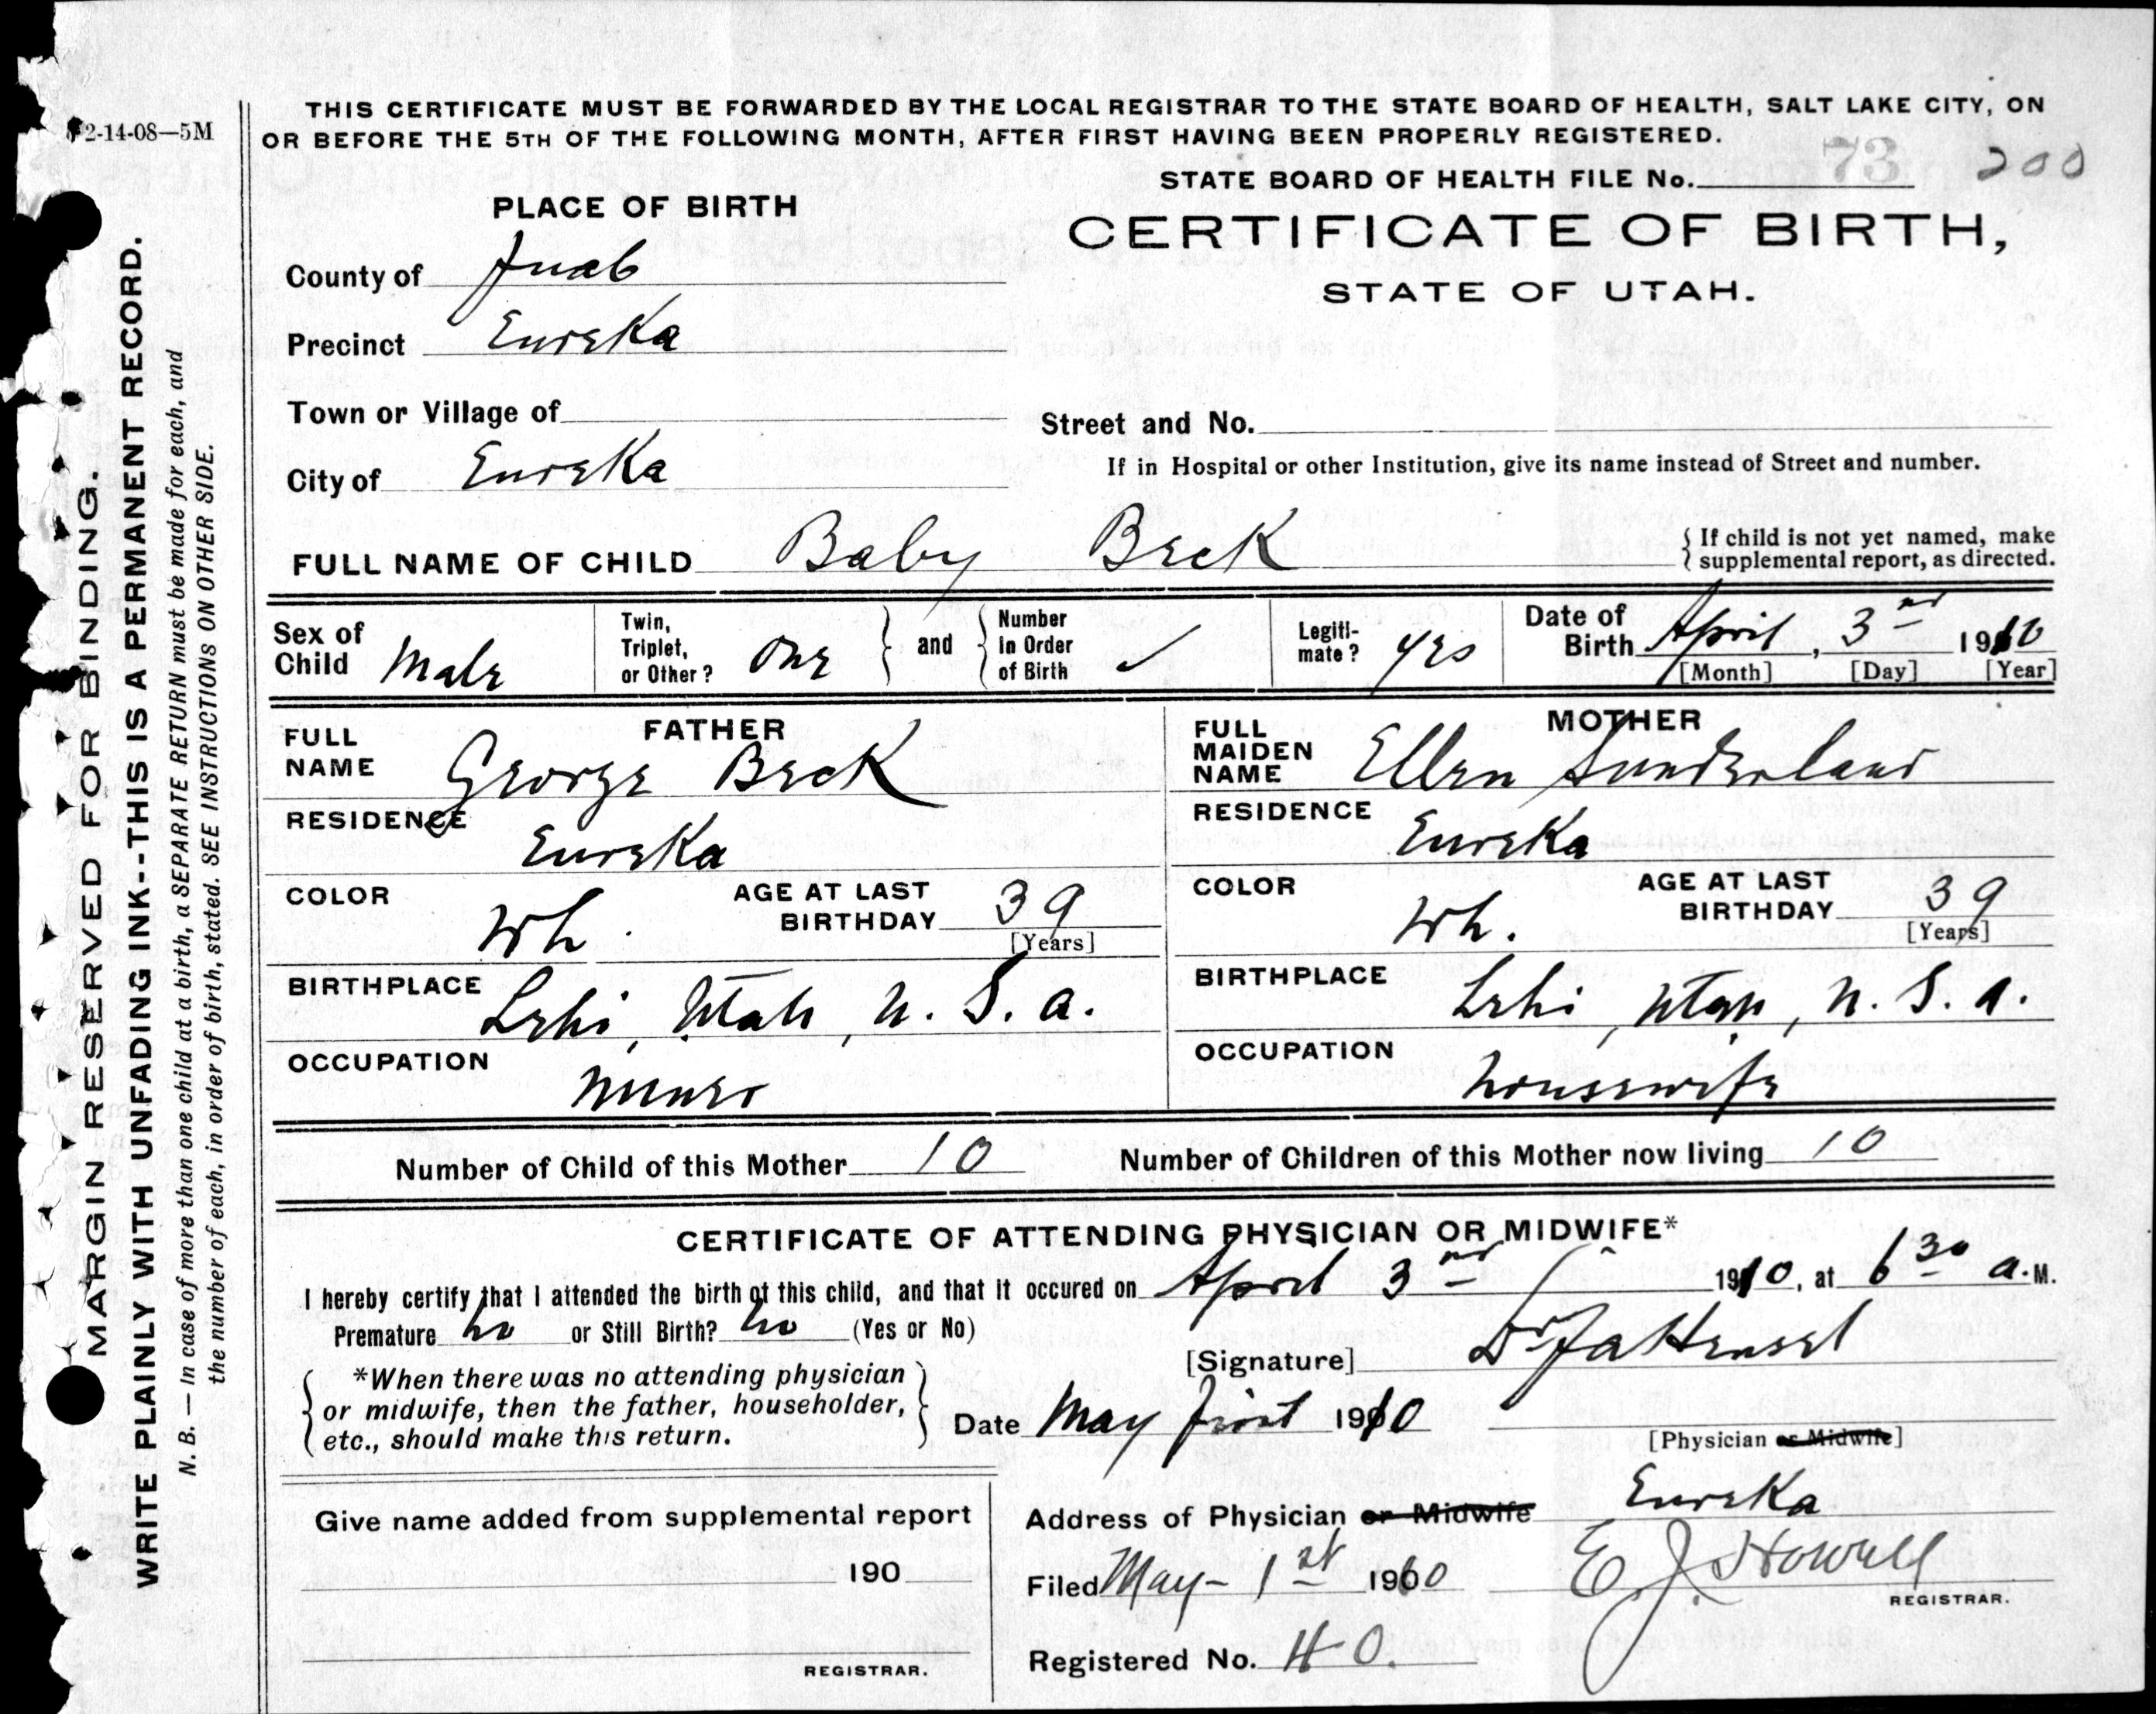 2-14-08—5M
THIS CERTIFICATE MUST BE FORWARDED BY THE LOCAL REGISTRAR TO THE STATE BOARD OF HEALTH, SALT LAKE CITY, ON
OR BEFORE THE 5TH OF THE FOLLOWING MONTH, AFTER FIRST HAVING BEEN PROPERLY REGISTERED.
STATE BOARD OF HEALTH FILE No. 73 200
PLACE OF BIRTH
CERTIFICATE OF BIRTH,
STATE OF UTAH.
County of Juab
Precinct Eureka
Town or Village of
Street and No.
City of Eureka
If in Hospital or other Institution, give its name instead of Street and number.
FULL NAME OF CHILD Baby Beck
{ If child is not yet named, make
supplemental report, as directed.
Sex of Child Male
Twin, Triplet, or Other? One } and { Number in Order of Birth ✓
Legiti-mate? yes
Date of Birth April, 3rd 1910
[Month] [Day] [Year]
FATHER
FULL NAME George Beck
RESIDENCE Eureka
COLOR Wh. AGE AT LAST BIRTHDAY 39 [Years]
BIRTHPLACE Lehi, Utah, U.S.A.
OCCUPATION Miner
MOTHER
FULL MAIDEN NAME Ellen Sunderland
RESIDENCE Eureka
COLOR Wh. AGE AT LAST BIRTHDAY 39 [Years]
BIRTHPLACE Lehi, Utah, U.S.A.
OCCUPATION housewife
Number of Child of this Mother 10 Number of Children of this Mother now living 10
CERTIFICATE OF ATTENDING PHYSICIAN OR MIDWIFE*
I hereby certify that I attended the birth of this child, and that it occured on April 3rd 1910, at 6 30 a. M.
Premature no or Still Birth? no (Yes or No)
[Signature] Dr
{ *When there was no attending physician
or midwife, then the father, householder,
etc., should make this return. }
Date May first 1910
[Physician or Midwife]
Give name added from supplemental report
190
REGISTRAR.
Address of Physician or Midwife Eureka
Filed May-1st 1910 E. J. Howell
REGISTRAR.
Registered No. 40.
MARGIN RESERVED FOR BINDING.
WRITE PLAINLY WITH UNFADING INK--THIS IS A PERMANENT RECORD.
N. B. — In case of more than one child at a birth, a SEPARATE RETURN must be made for each, and
the number of each, in order of birth, stated. SEE INSTRUCTIONS ON OTHER SIDE.